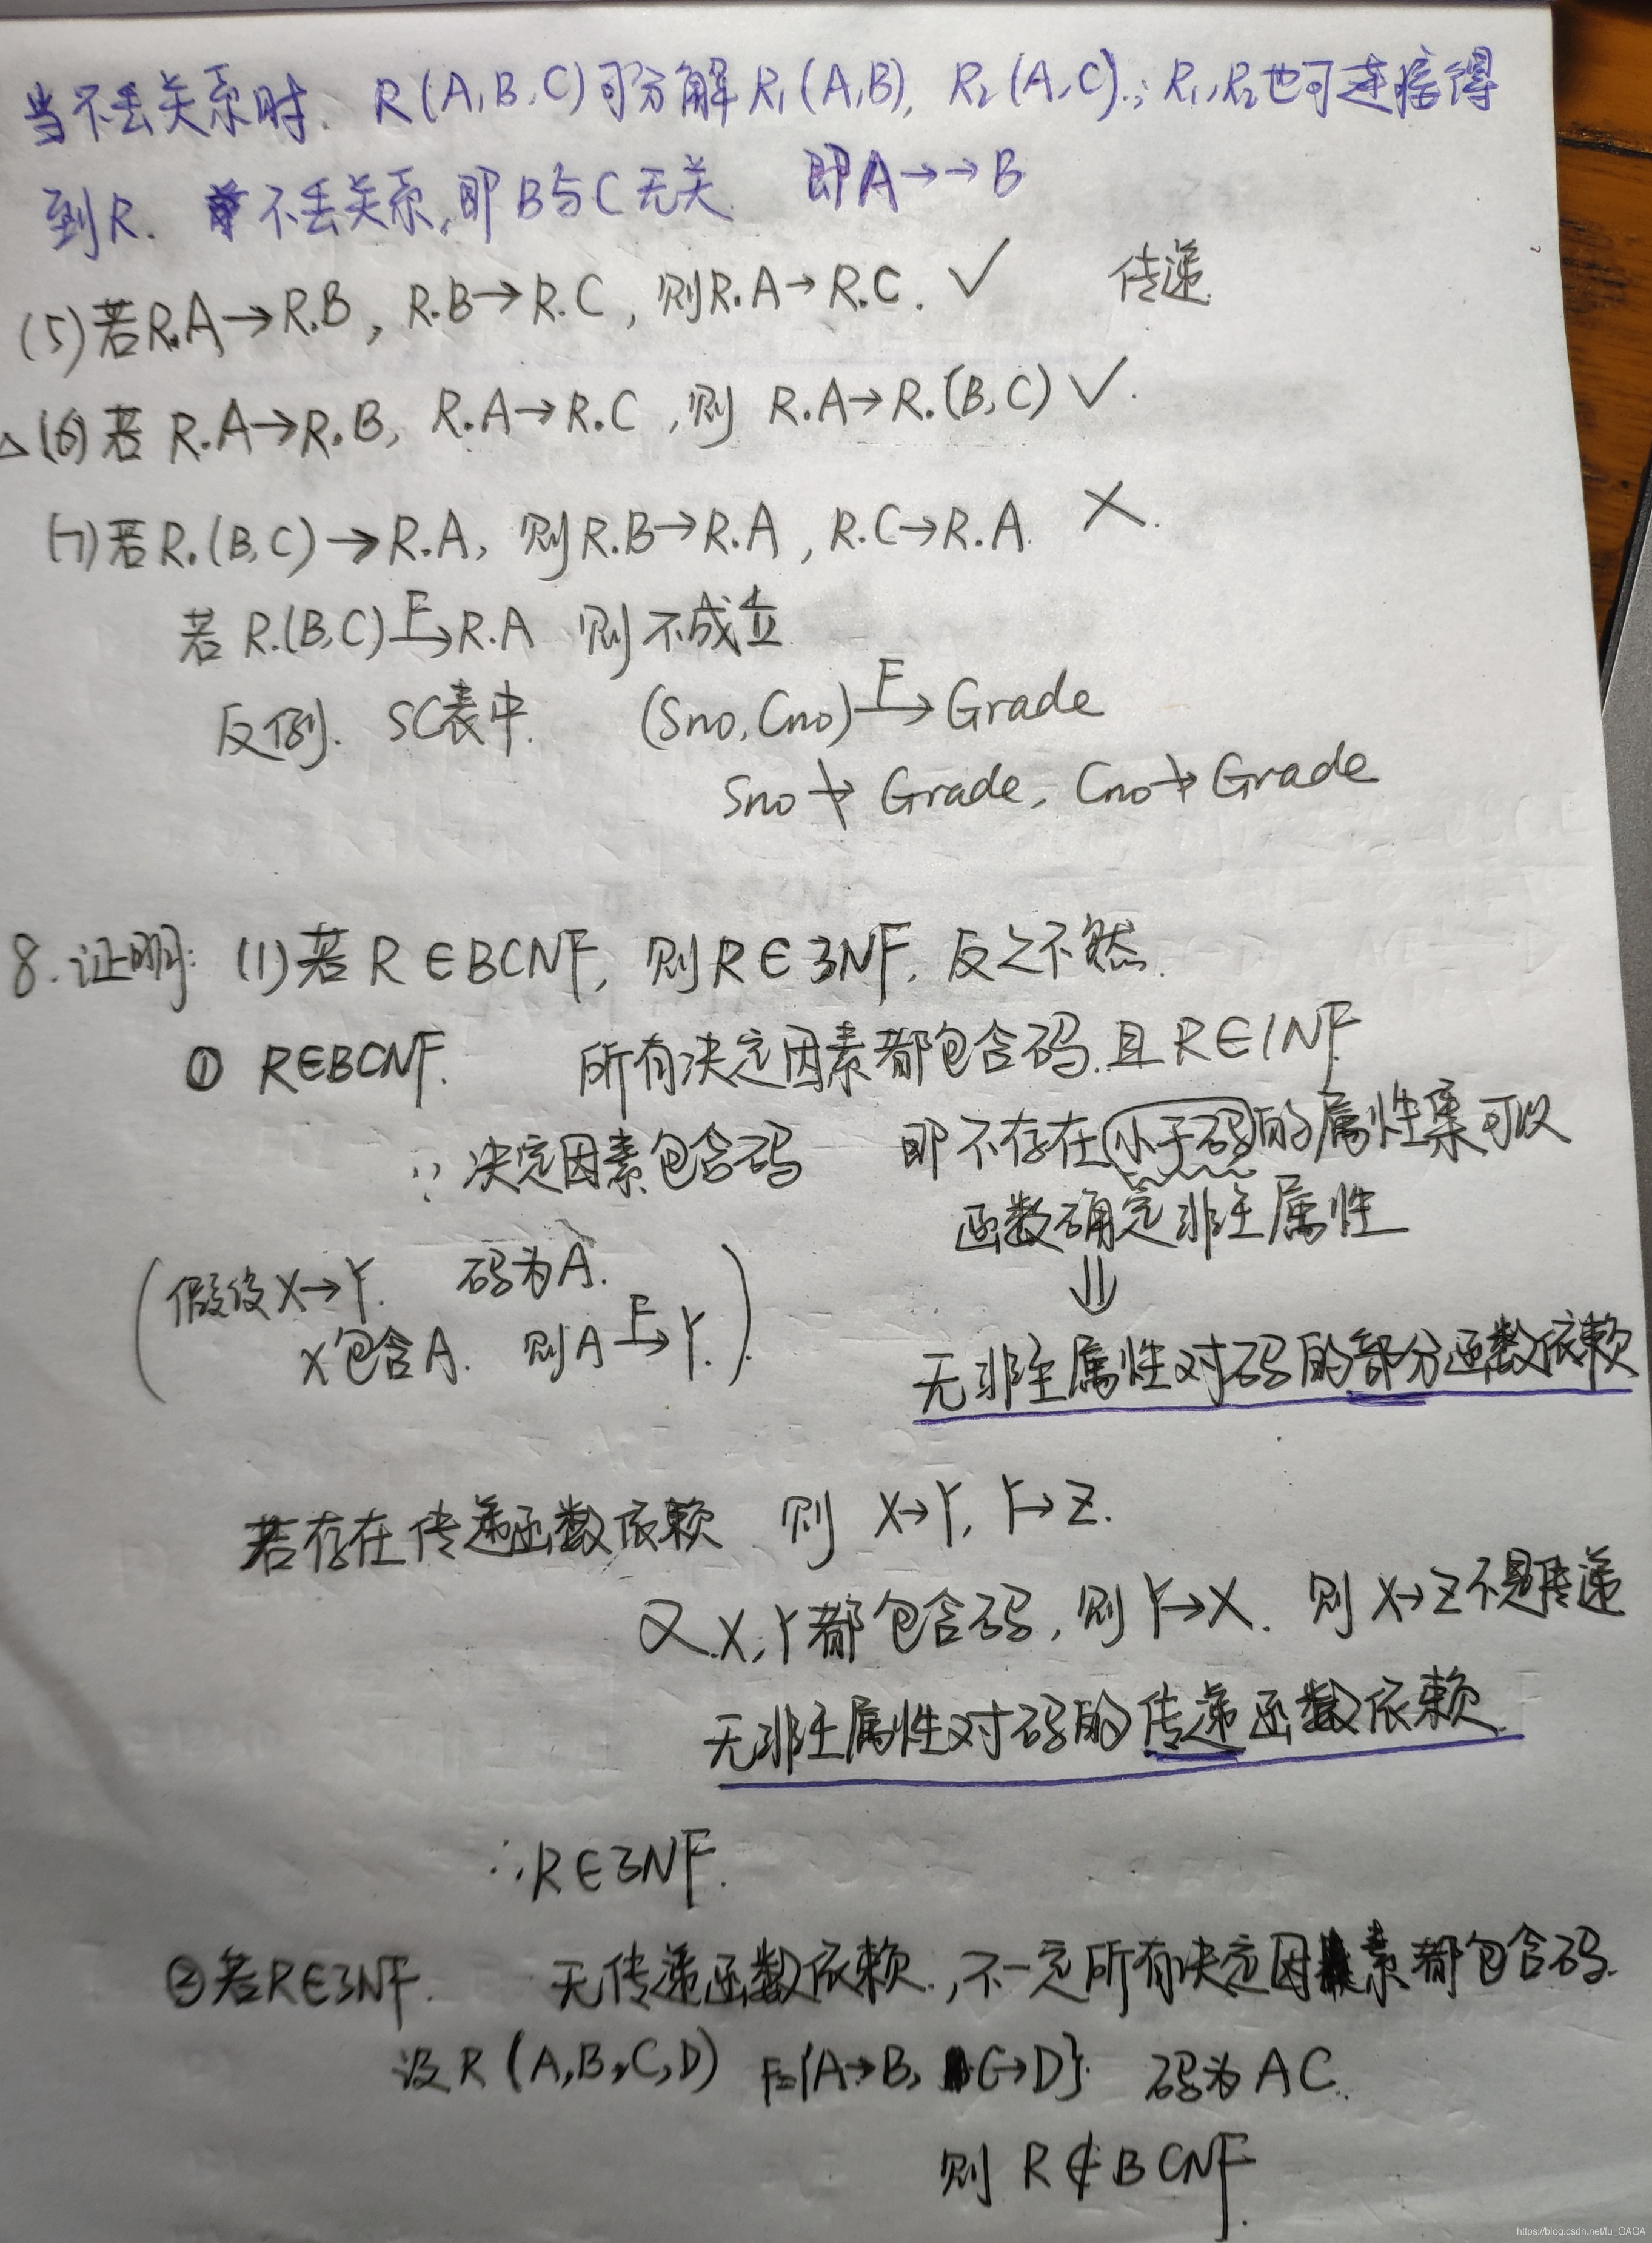 当不丢关系时. R(A,B,C)可分解R₁(A,B), R₂(A,C).; R₁,R₂也可连接得
到R. 不丢关系,即B与C无关 即A→→B
(5)若R.A→R.B, R.B→R.C, 则R.A→R.C. ✓ 传递
△(6)若 R.A→R.B, R.A→R.C, 则 R.A→R.(B,C) ✓.
(7)若R.(B,C)→R.A, 则R.B→R.A, R.C→R.A. ×.
若R.(B,C)—F→R.A 则不成立
反例. SC表中. (Sno,Cno)—F→Grade
Sno↛Grade, Cno↛Grade
8.证明: (1)若R∈BCNF, 则R∈3NF, 反之不然.
① R∈BCNF. 所有决定因素都包含码.且R∈1NF.
∵决定因素包含码 即不存在小于码的属性集可以
函数确定非主属性
(假设X→Y. 码为A.
⇓
X包含A. 则A—F→Y.)
无非主属性对码的部分函数依赖
若存在传递函数依赖 则 X→Y, Y→Z.
又X,Y都包含码, 则Y→X. 则X→Z不是传递
无非主属性对码的传递函数依赖.
∴R∈3NF.
②若R∈3NF. 无传递函数依赖., 不一定所有决定因素都包含码.
设R(A,B,C,D) F={A→B, C→D}. 码为AC.
则 R∉BCNF.
https://blog.csdn.net/fu_GAGA